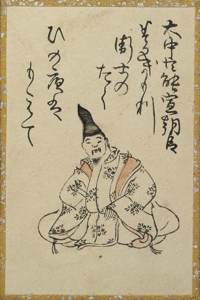 大中臣能宣朝臣
みかきもり
衛士の
たく
ひの夜は
もえて